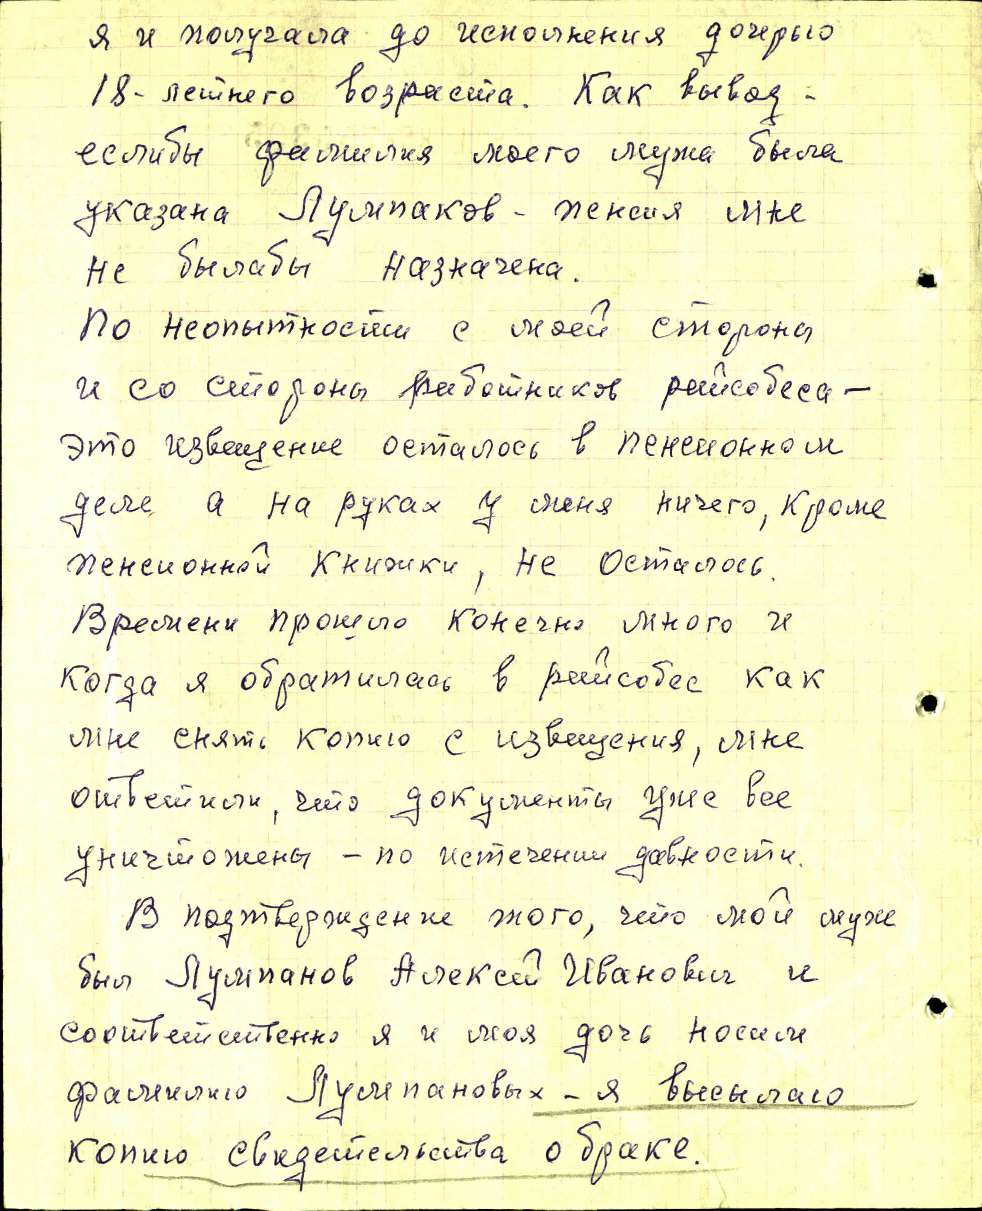 я и получала до исполнения дочерью
18-летнего возраста. Как вывод -
еслибы фамилия моего мужа была
указана Лумпаков - пенсия мне
не былабы назначена.
По неопытности с моей стороны
и со стороны работников райсобеса -
это извещение осталось в пенсионном
деле а на руках у меня ничего, кроме
пенсионной книжки, не осталось.
Времени прошло конечно много и
когда я обратилась в райсобес как
мне снять копию с извещения, мне
ответили, что документы уже все
уничтожены - по истечении давности.
В подтверждение того, что мой муж
был Лумпанов Алексей Иванович и
соответственно я и моя дочь носили
фамилию Лумпановых - я высылаю
копию свидетельства о браке.